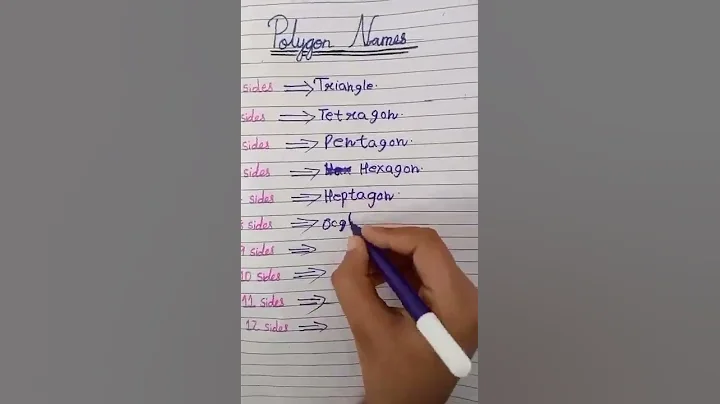 Polygon Names
sides ⟹ Triangle.
sides ⟹ Tetragon.
sides ⟹ Pentagon.
sides ⟹ Hexagon.
sides ⟹ Heptagon.
sides ⟹ Ocg
9 sides ⟹
10 sides ⟹
11 sides ⟹
12 sides ⟹